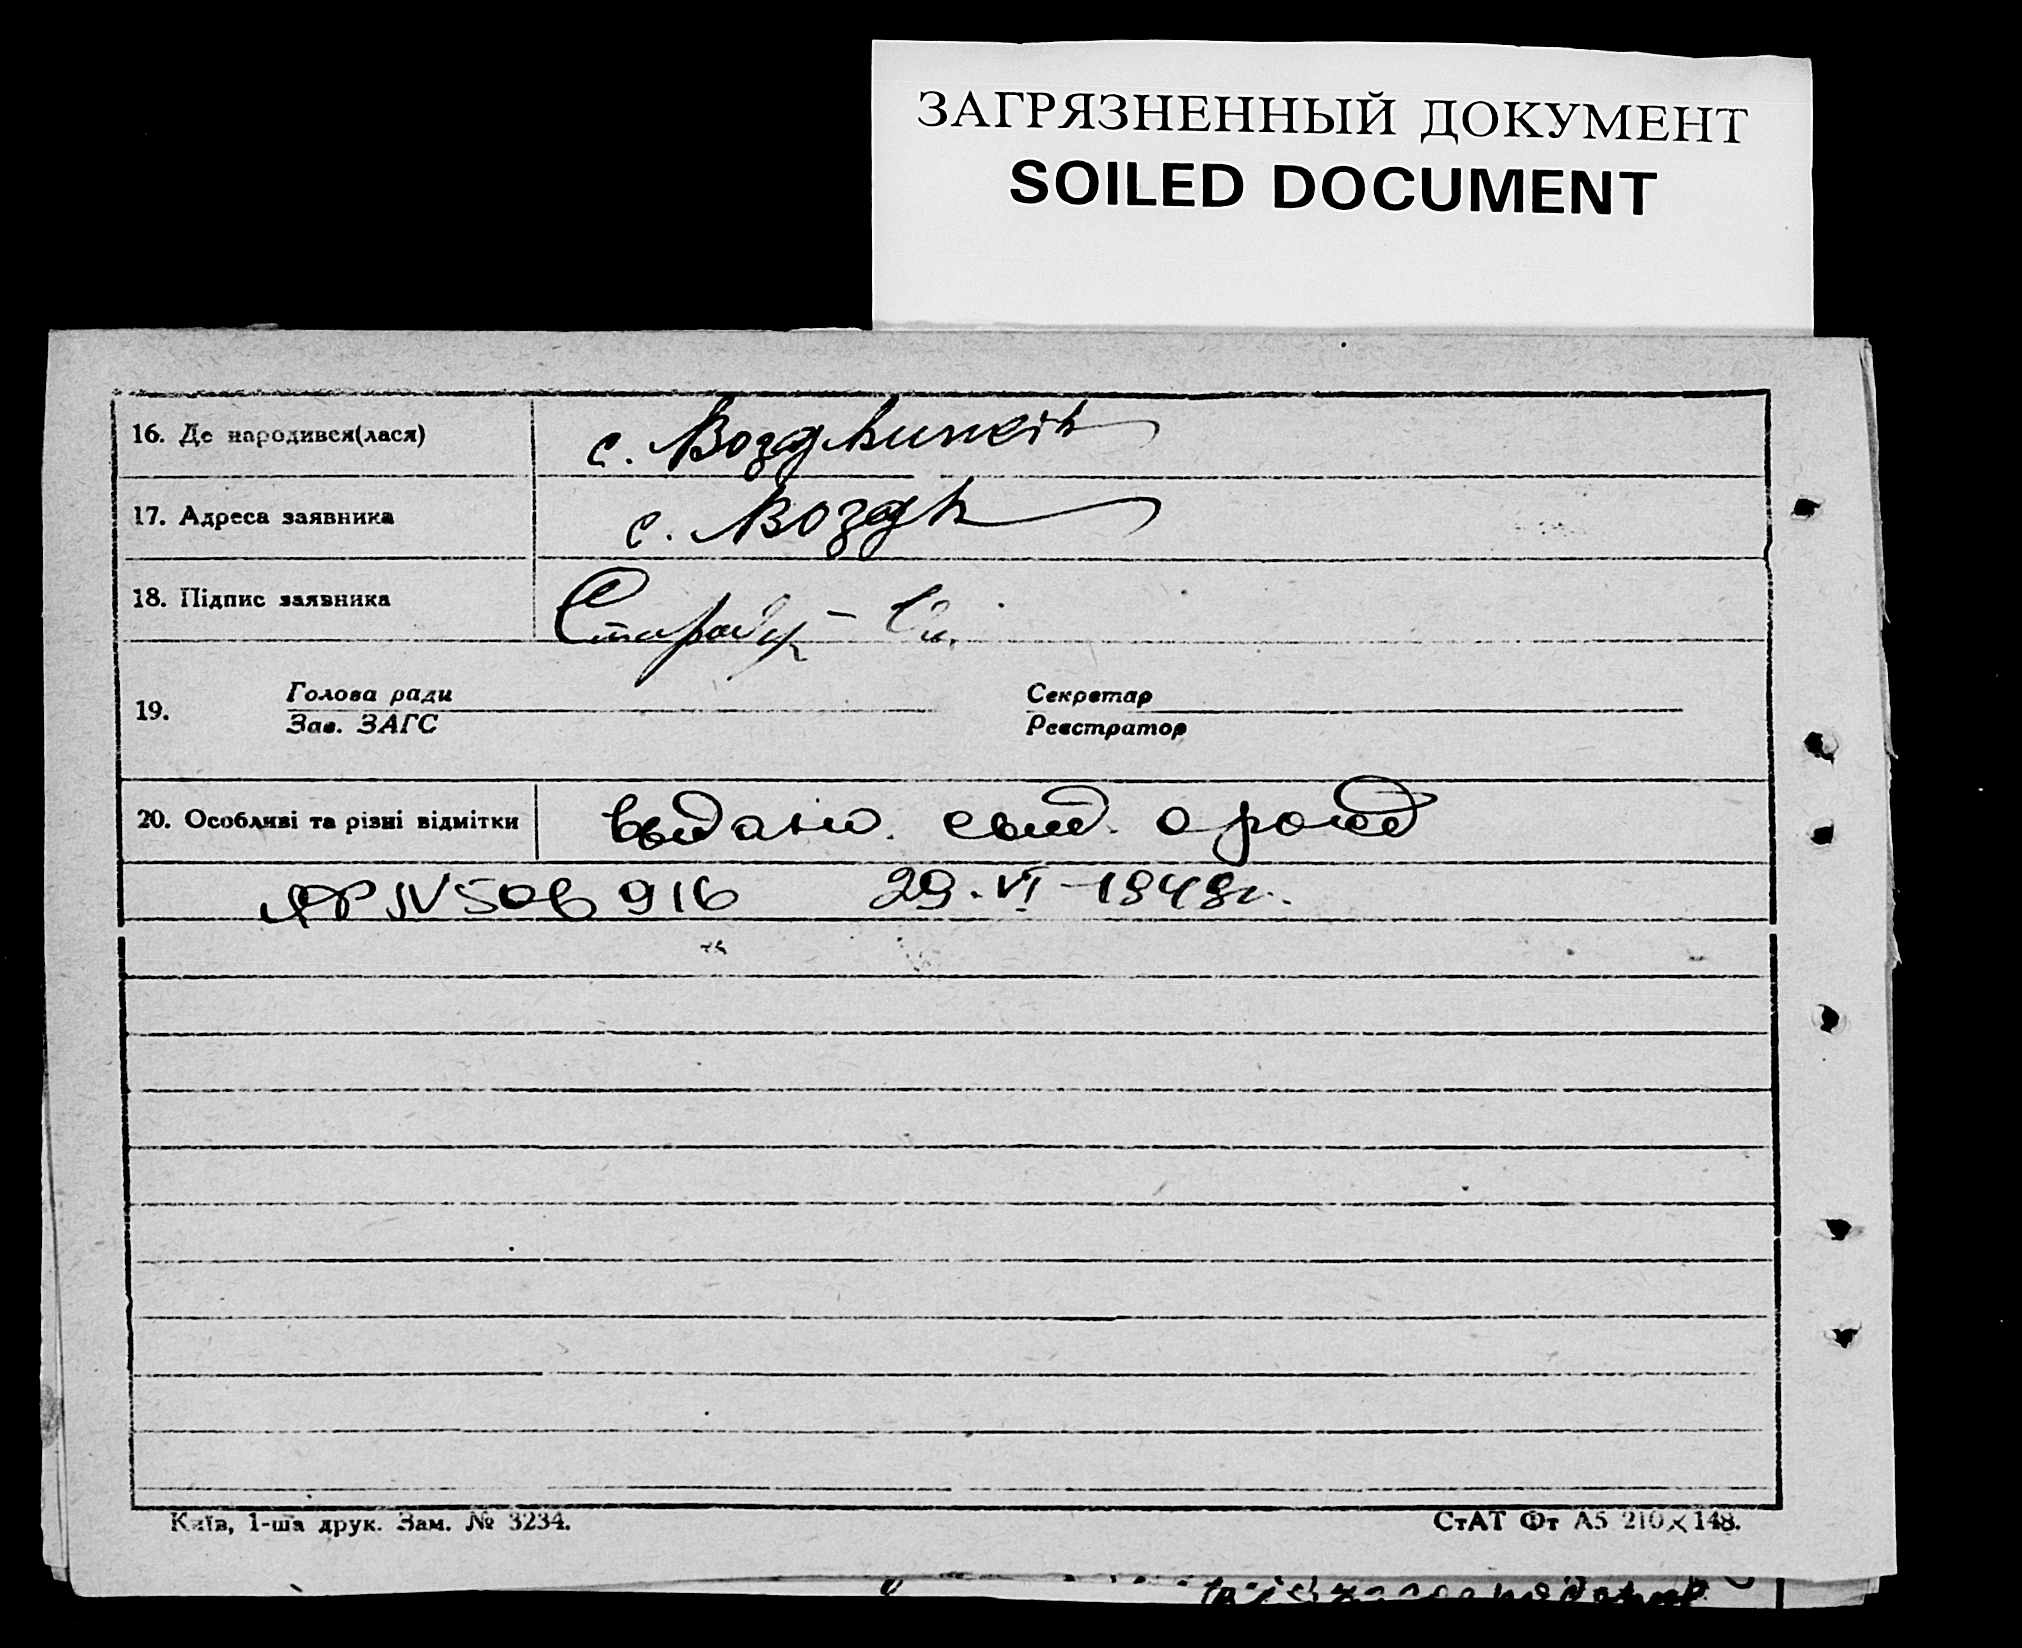 ЗАГРЯЗНЕННЫЙ ДОКУМЕНТ
SOILED DOCUMENT
16. Де народився(лася) с.
17. Адреса заявника с. Воздв
18. Підпис заявника
19. Голова ради Секретар
Зав. ЗАГС Реєстратор
20. Особливі та різні відмітки выдано. свид. о рожд
IV 506916 29. VI - 1949г.
Київ, 1-ша друк. Зам. № 3234. СтАТ Фт А5 210×148.